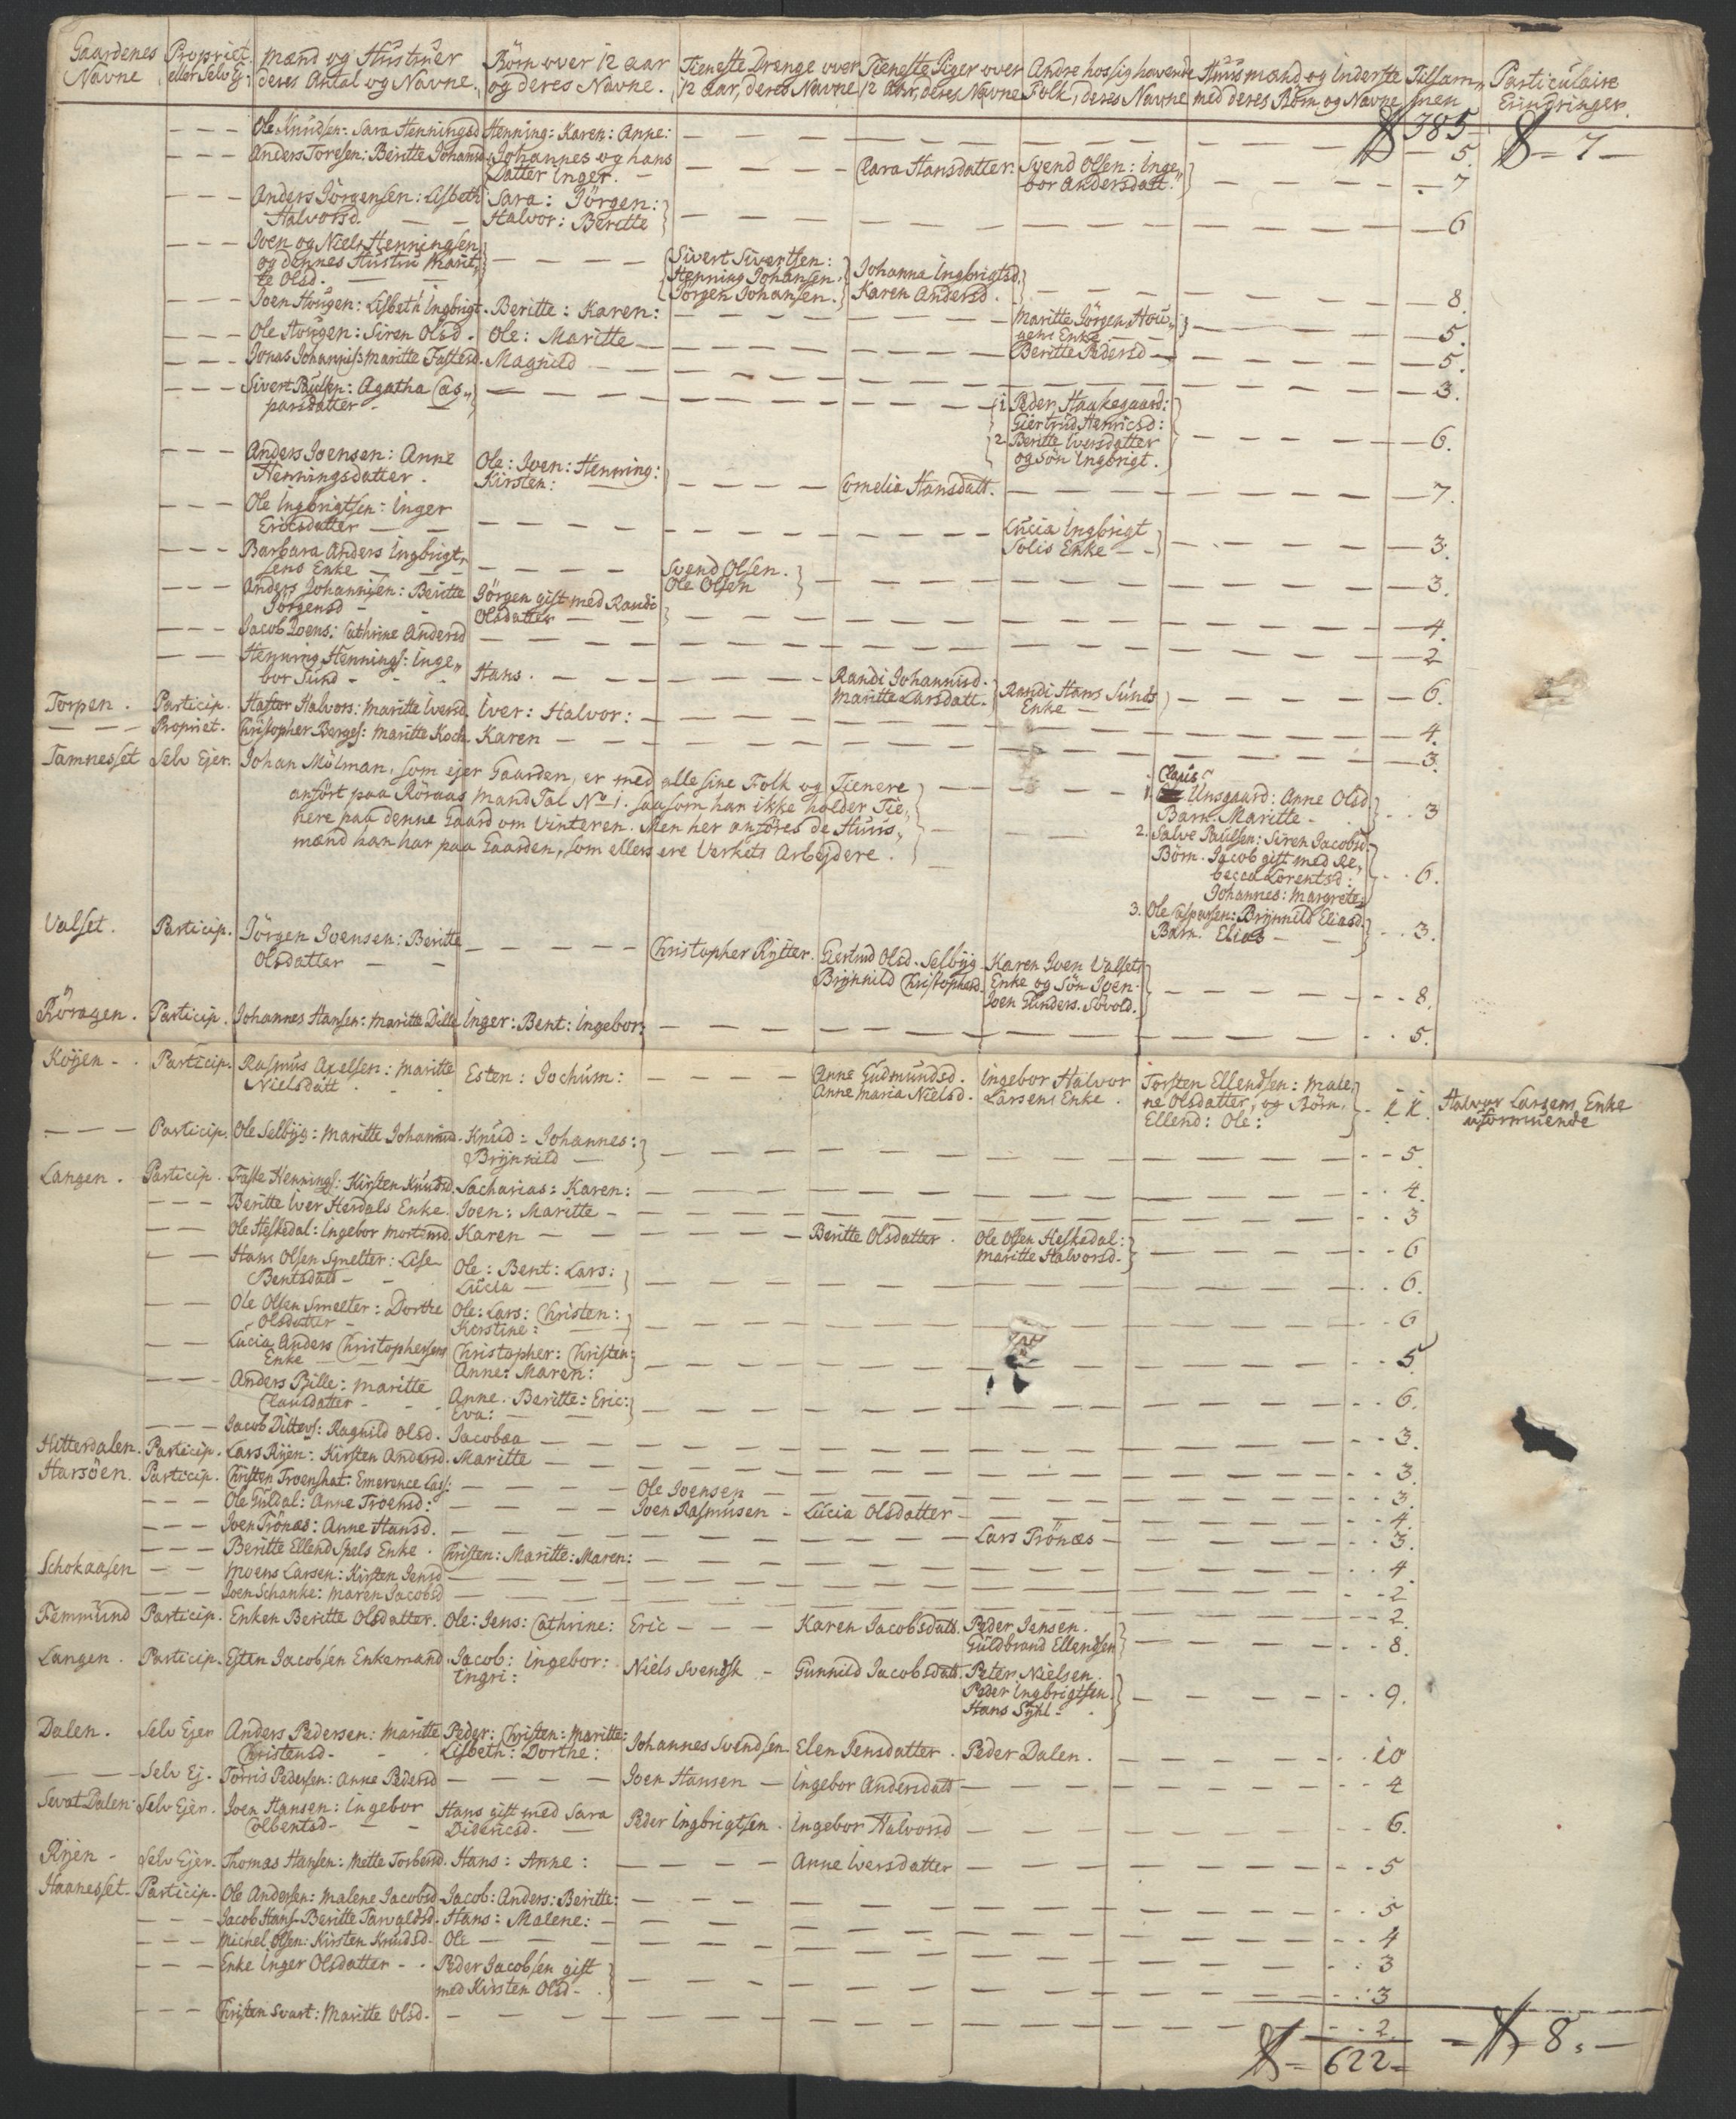 Gaardenes Navne | Propriet. eller Selv Ej: | Mænd og Hustruer deres Antal og Navne. | Börn over 12 aar og deres Navne. | Tieneste Drenge over 12 aar, deres Navne | Tieneste Piger over 12 Ahr, deres Navne | Andre hos sig havende Folk, deres Navne | Huusmænd og Inderste med deres Börn og Navne | Tilsammen | Particulaire Erindringer.
385 | 7
Ole Knudsen: Sara Henningsd | Henning: Karen: Anne: | 5.
Anders Toresen: Beritte Johansd. | Johannes og hans Datter Inger. | Clara Hansdatter: | Svend Olsen: Ingebor Andersdatt: | 7
Anders Jörgensen: Lisbeth Halvorsd. | Sara: Jörgen: Halvor: Beritte | 6
Joen og Niels Henningsen og dennes Hustru Maritte Olsd. | Sivert Sivertsen: Henning Johansen: Jörgen Johansen. | Johanna Ingbrigtsd. Karen Andersd. | 8.
Joen Hougen: Lisbeth Ingbrigt. | Beritte: Karen: | Maritte Jörgen Hougens Enke | 5.
Ole Hougen: Siren Olsd. | Ole: Maritte | Beritte Pedersd | 5.
Jonas Johannis: Maritte Fastesd. | Magnild | 3.
Sivert Pulsen: Agatha Casparsdatter | 1. Peder Haakegaard: Giertrud Henricsd: 2. Beritte Iversdatter og Sön Ingbrigt. | 6.
Anders Joensen: Anne Henningsdatter. | Ole: Joen: Henning: Kirsten: | Cornelia Hansdatt. | 7.
Ole Ingbrigtsen: Inger Ericsdatter | Lucia Ingbrigt Solis Enke | 3.
Barbara Anders Ingbrigtsens Enke | Svend Olsen. Ole Olsen | 3.
Anders Johannisen: Beritte Jörgensd | Jörgen gift med Randi Olsdatter | 4.
Jacob Joens: Cathrine Andersd | 2
Henning Hennings: Ingebor Sund | Hans. | Randi Johannisd. Maritte Larsdatt. | Randi Hans Sunds Enke | 6.
Torpen. | Particip. | Haftor Halvors: Maritte Iversd. | Iver: Halvor: | 4.
Propriet. | Christopher Berges: Maritte Koch. | Karen | 3.
Tamnesset | Selv Ejer. | Johan Mölman, som ejer Gaarden, er med alle sine Folk og Tienere
anfört paa Röraas Mand Tal No 1. saasom han ikke holder Tie„
nere paa denne Gaard om Vinteren. Men her anföres de Huus„
mænd han har paa Gaarden, som ellers ere Verkets Arbejdere.
1. Claus Unsgaard: Anne Olsd Barn. Maritte | 3
2. Salve Paulsen: Siren Jacobsd. Börn. Jacob gift med Rebecca Lorentsd: Johannes: Margrete | 6.
3. Ole Caspersen: Brynnild Eliasd. Barn. Elias | 3.
Valset. | Particip. | Jörgen Joensen: Beritte Olsdatter | Christopher Rytter. | Giertrud Olsd. Selbÿg Brÿnnild Christophersd. | Karen Joen Valsets Enke og Sön Joen. Joen Gunders. Sovold. | 8.
Röragen. | Particip. | Johannes Hansen: Maritte Dille | Inger: Bent: Ingebor: | 5.
Koÿen | Particip. | Rasmus Axelsen: Maritte Nielsdatt. | Esten: Jochum: | Anne Gudmundsd. Anne Maria Nielsd. | Ingebor Halvor Larsens Enke. | Torsten Ellendsen: Malene Olsdatter, og Börn. Ellend: Ole: | 11. | Halvor Larsens Enke uformuende
Particip. | Ole Selbÿg: Maritte Johannisd. | Knud: Johannes: Brÿnnild | 5.
Langen. | Particip. | Faste Hennings: Kirsten Knudsd. | Sacharias: Karen: | 4.
Beritte Iver Herdals Enke. | Joen: Maritte | 3
Ole Heskedal: Ingebor Mortensd. | Karen | Beritte Olsdatter. | Ole Olsen Heskedal: Maritte Halvorsd. | 6
Hans Olsen Smelter: Lise Bentsdatt | Ole: Bent: Lars: Lucia | 6.
Ole Olsen Smelter: Dorthe Olsdatter | Ole: Lars: Christen: Kerstine: | 6
Lucia Anders Christophersens Enke | Christopher: Christen: Anne: Maren: | 5
Anders Bille: Maritte Clausdatter | Anne. Beritte: Eric: Eva: | 6.
Jacob Ditlevs: Ragnild Olsd. | Jacobæa | 3.
Hitterdalen. | Particip. | Lars Rÿen: Kirsten Andersd. | Maritte | 3.
Harsöen. | Particip. | Christen Troenshat: Emerence Lass: | Ole Joensen | 3.
Ole Guldal: Anne Troensd: | Joen Rasmusen | Lucia Olsdatter | 4.
Joen Trönæs: Anne Hansd. | Lars Trönæs | 3.
Beritte Ellend Spels Enke. | Christen: Maritte: Maren: | 4.
Schokaasen | Moens Larsen: Kirsten Jensd | 2
Joen Schanke: Maren Jacobsd | 2.
Femmund | Particip. | Enken Beritte Olsdatter. | Ole: Jens: Cathrine: | Eric | Karen Jacobsdatt. | Peder Jensen. Guldbrand Ellendsen | 8.
Langen. | Particip. | Esten Jacobsen Enkemand | Jacob: Ingebor: Ingri: | Niels Svendsk | Gunnild Jacobsdatt. | Peter Nielsen. Peder Ingbrigtsen. Hans Syhl | 9.
Dalen. | Selv Ejer | Anders Pedersen: Maritte Christensd. | Peder: Christen: Maritte: Lisbeth: Dorthe: | Johannes Svendsen | Elen Jensdatter. | Peder Dalen. | 10
Selv Ej. | Torris Pedersen: Anne Pedersd | Joen Hansen | Ingebor Andersdatt | 4
Sevat Dalen | Selv Ejer. | Joen Hansen: Ingebor Colbentsd | Hans gift med Sara Didericsd. | Peder Ingbrigtsen. | Ingebor Halvorsd | 6.
Rÿen | Selv Ejer. | Thomas Hansen: Mette Torbersd. | Hans: Anne: | Anne Iversdatter | 5
Haanesset | Particip. | Ole Andersen: Malene Jacobsd. | Jacob: Anders: Beritte: | 5
Jacob Hans. Beritte Tarvaldsd. | Hans: Malene: | 4
Michel Olsen: Kirsten Knudsd. | Ole | 3
Enke Inger Olsdatter | Peder Jacobsen gift med Kirsten Olsd. | 3
Christen Svart: Maritte Olsd. | 2.
622 | 8.